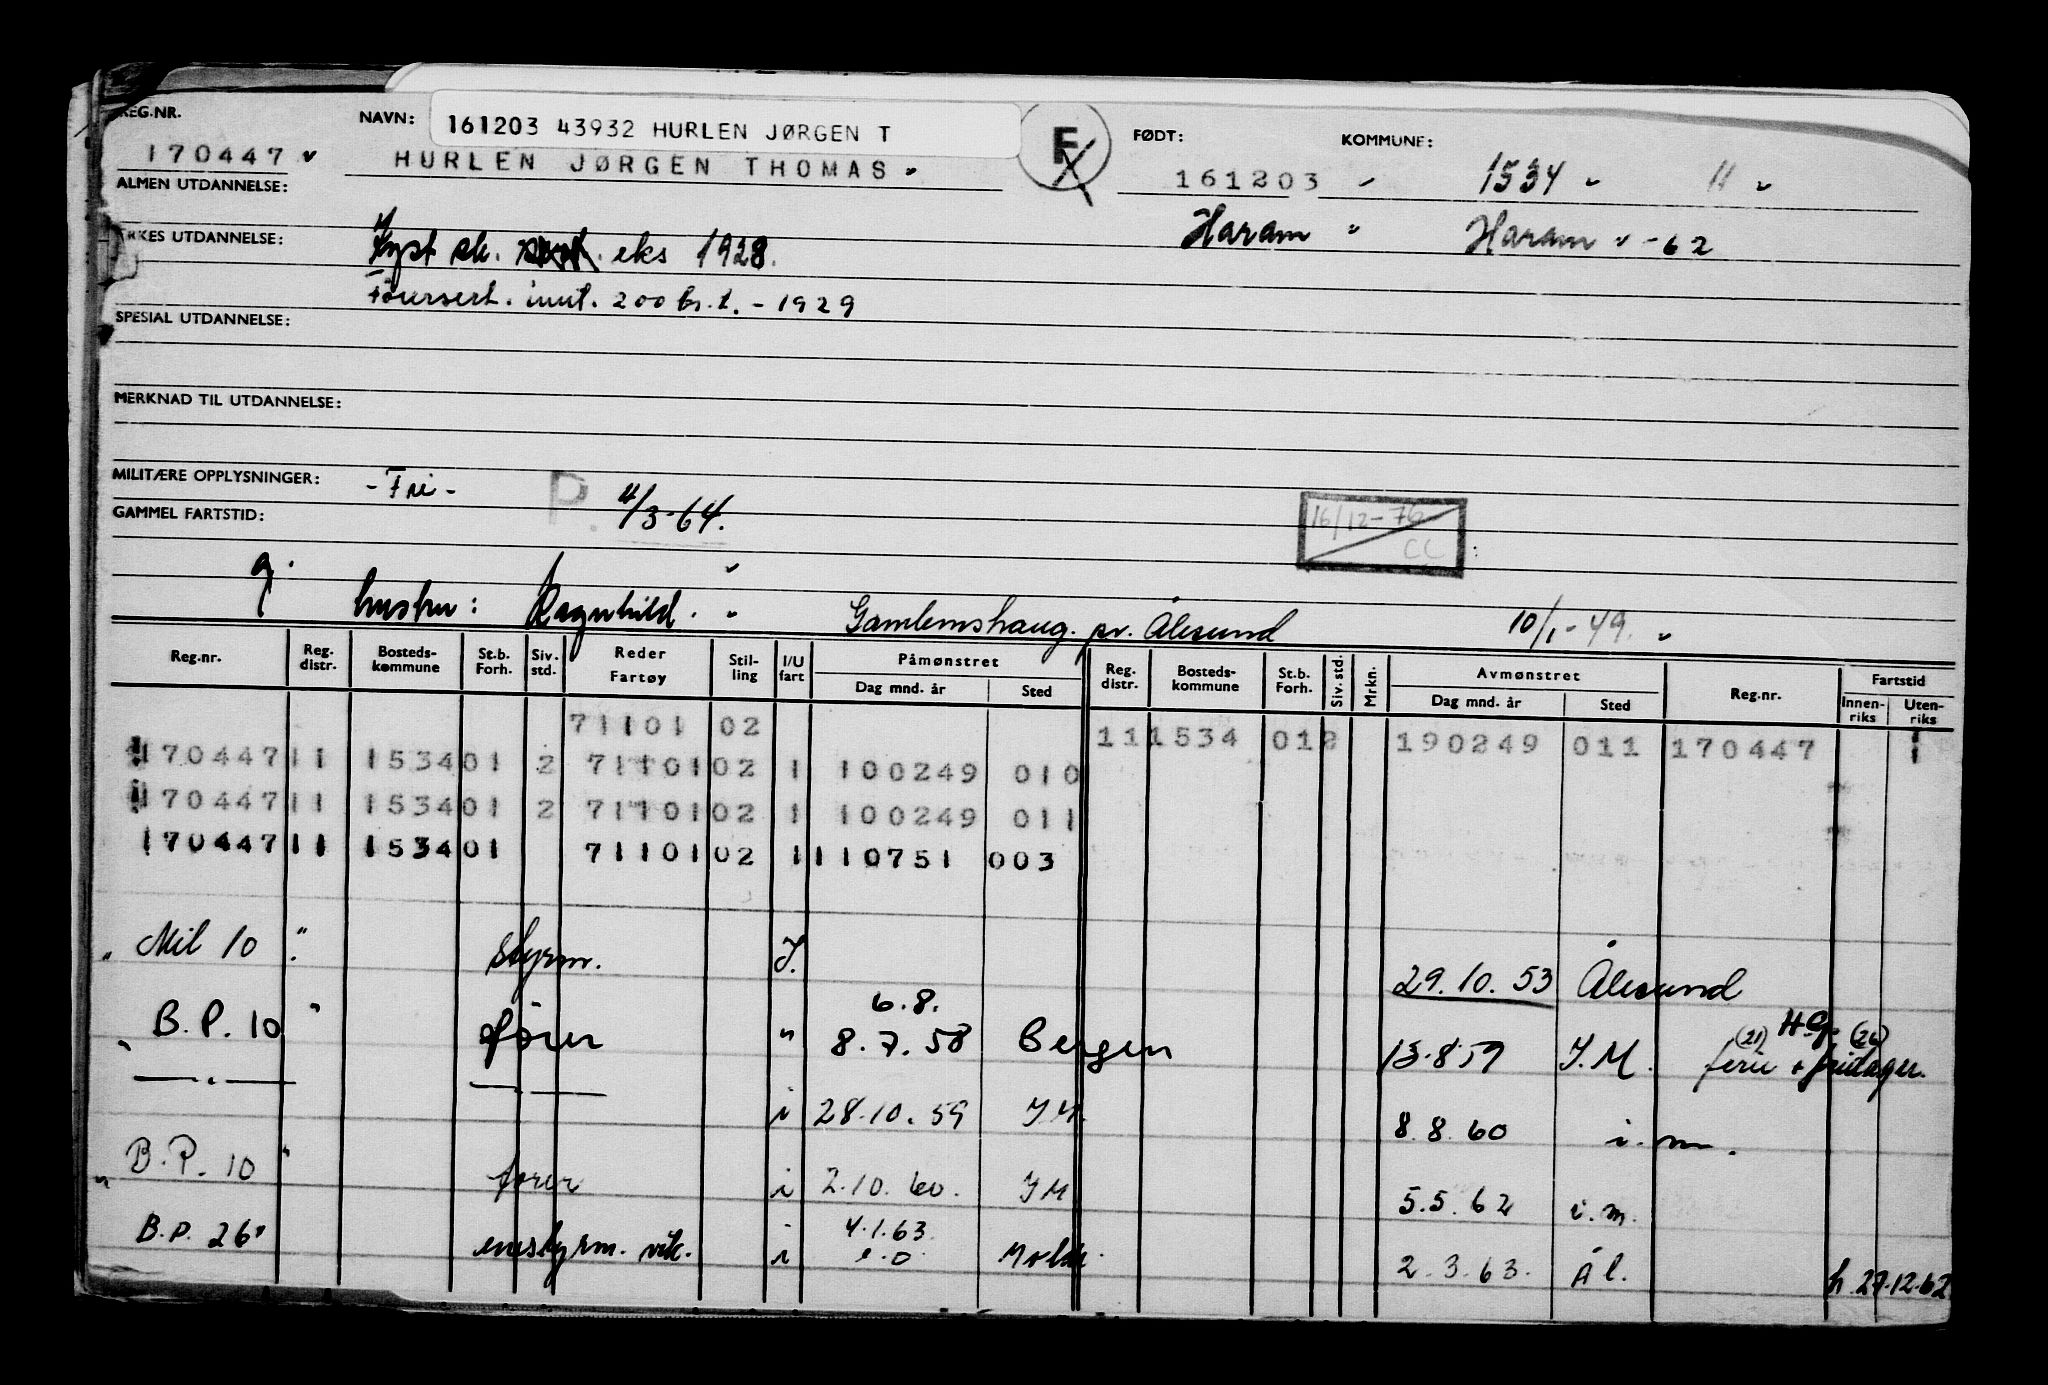 REG.NR. NAVN: 161203 43932 HURLEN JØRGEN T F FØDT: KOMMUNE:
170447 HURLEN JØRGEN THOMAS 161203 1534 11
ALMEN UTDANNELSE:
Haram Haram -62
YRKES UTDANNELSE: Kyst sk. eks 1928.
Førersert. innt. 200 br.t. - 1929
SPESIAL UTDANNELSE:
MERKNAD TIL UTDANNELSE:
MILITÆRE OPPLYSNINGER: - Fri - P. 4/3-64. 16/12-76 CC
GAMMEL FARTSTID:
g. hustru: Ragnhild. Gamlemshaug. pr. Ålesund 10/1-49.
Reg.nr. Reg. distr. Bosteds-kommune St.b. Forh. Siv. std. Reder Fartøy Stil-ling I/U fart Påmønstret Reg. distr. Bosteds-kommune St.b. Forh. Siv. std. Mrkn. Avmønstret Reg.nr. Fartstid
Dag mnd. år Sted Dag mnd. år Sted Innen-riks Uten-riks
71101 02 11 1534 01 2 190249 011 170447 1
170447 11 1534 01 2 71101 02 1 100249 010
170447 11 1534 01 2 71101 02 1 100249 011
170447 11 1534 01 71101 02 1 110751 003
" Mil 10 " styrm. I. 29.10.53 Ålesund
6.8. H.G.
" B.P. 10 " fører " 8.7.58 Bergen 13.8.59 I.M. (21) ferie + fridager. (26)
— " — — " — i 28.10.59 IM. 8.8.60 i.m.
" B.P. 10 " fører i 2.10.60. IM 5.5.62 i.m.
4.1.63.
B.P. 26 " enestyrm. vik. i e.o Molde. 2.3.63. Ål. h. 27.12.62